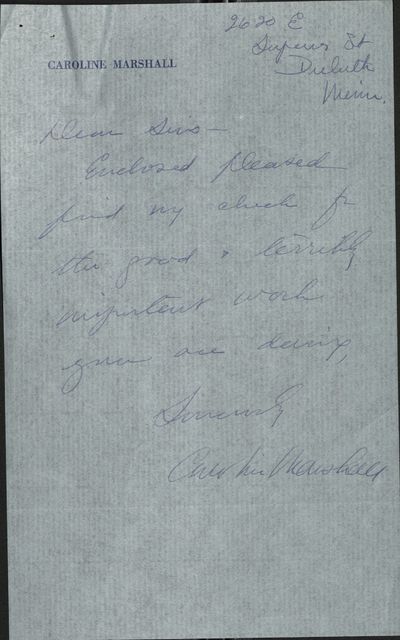 2620 E
Superior St
Duluth
Minn.
CAROLINE MARSHALL
Dear Sirs—
Enclosed pleased
find my check for
the good & terribly
important work
you are doing,
Sincerely
Caroline Marshall